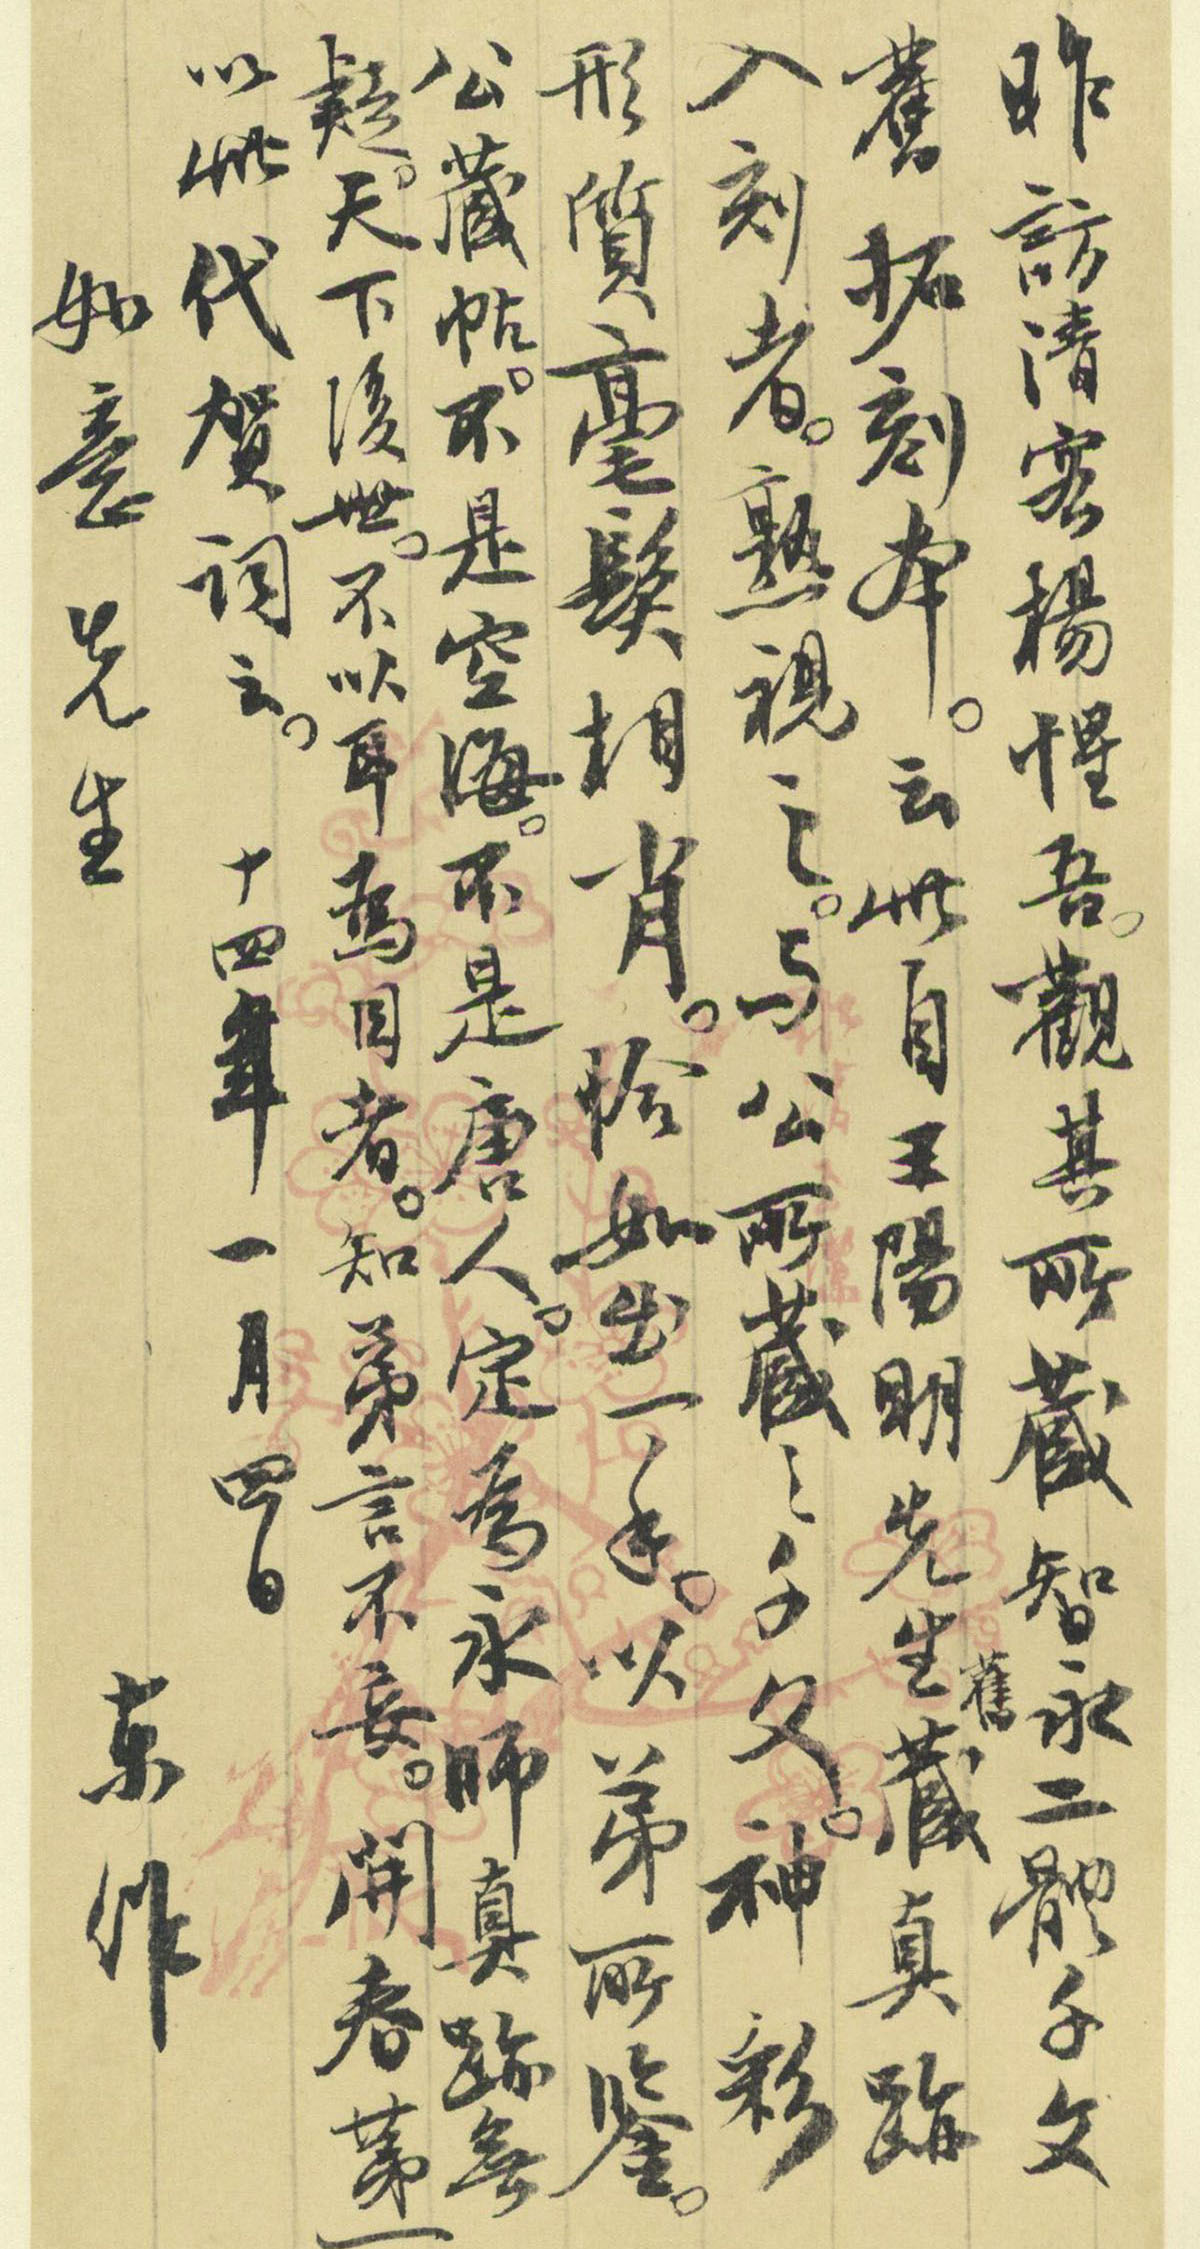 昨訪清客楊惺吾。觀其所藏智永二體千文
舊拓刻本。云此自王陽明先生舊藏真跡
入刻者。熟視之。与公所藏之千文。神彩
形質毫髮相肖。恰如出一手。以弟所鑒。
公藏帖。不是空海。不是唐人。定為永師真跡無
疑。天下後世。不以耳為目者。知弟言不妄。開春第一
以此代賀詞云。 十四年一月四日
如意先生 東作